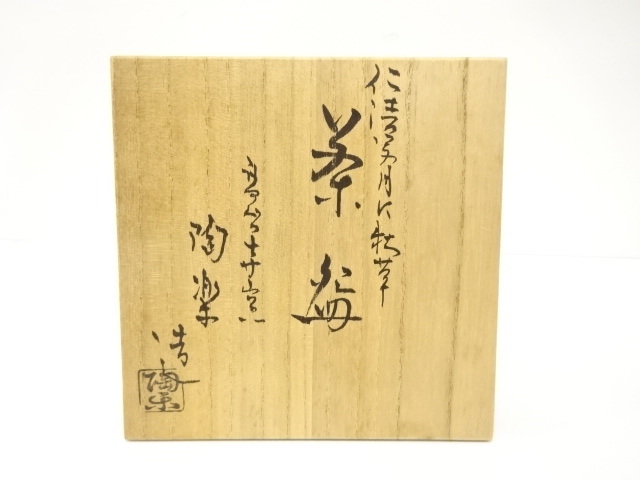 仁清写月に秋草
茶盌
陶楽
造
陶楽